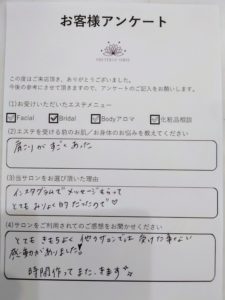 お客様アンケート
この度はご来店頂き、ありがとうございました。
今後の参考にさせて頂きますので、アンケートのご記入をお願いします。
(1)お受けいただいたエステメニュー
Facial Bridal Bodyアロマ 化粧品相談
(2)エステを受ける前のお肌／お身体のお悩みを教えてください
肩こりがすごくあった
(3)当サロンをお選び頂いた理由
インスタグラムでメッセージもらって
とてもみりょく的だったので♡
(4)サロンをご利用されてのご感想をお聞かせください
とてもきもちよく他のサロンでは受けた事ない
感動がありました!
時間作ってまた、きます